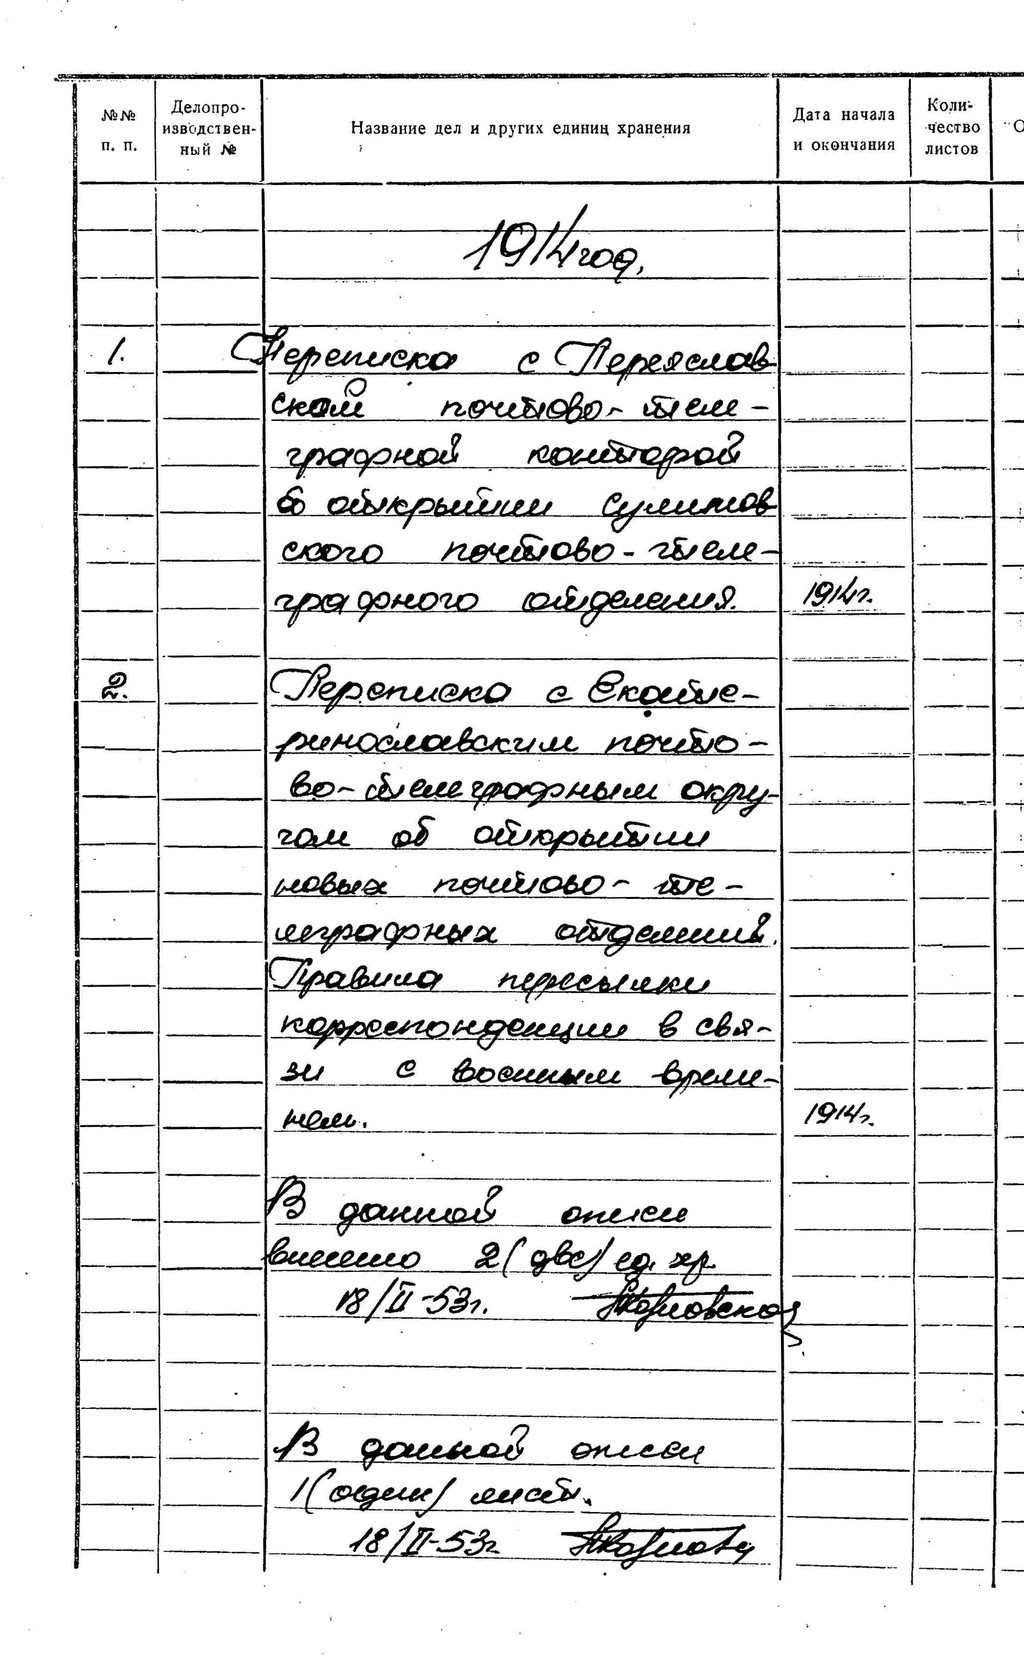 №№ п. п.
Делопро-
изводствен-
ный №
Название дел и других единиц хранения
Дата начала
и окончания
Коли-
чество
листов
1914 год.
1. Переписка с Переяслав
ской почтово-теле-
графной конторой
об открытии Сулимов
ского почтово-теле-
графного отделения. 1914г.
2. Переписка с Екате-
ринославским почто-
во-телеграфным окру-
гом об открытии
новых почтово-те-
леграфных отделений.
Правила пересылки
корреспонденции в свя-
зи с военным време-
нем. 1914г.
В данной описи
внесено 2 (две) ед. хр.
18/II-53г.
В данной описи
1 (один) лист.
18/II-53г.